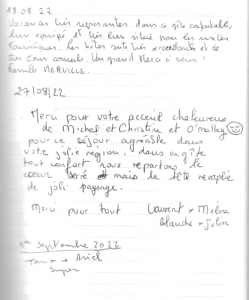 18 08 22
Vacances très reposantes dans ce gîte confortable,
bien équipé et très bien situé pour les visites
touristiques. Les hôtes sont très accueillants et de
bons conseils. Un grand Merci à vous !
Famille MERVILLE.
27/08/22
Merci pour votre accueil chaleureux
de Michel et Christine et O'malley
pour ce séjour agréable dans
votre jolie région, dans un gîte
tout confort nous repartons le
cœur serré et mais la tête remplie
de joli paysage.
Merci pour tout Laurent
Blanche Julien
Septembre 2022
Ariel
Super